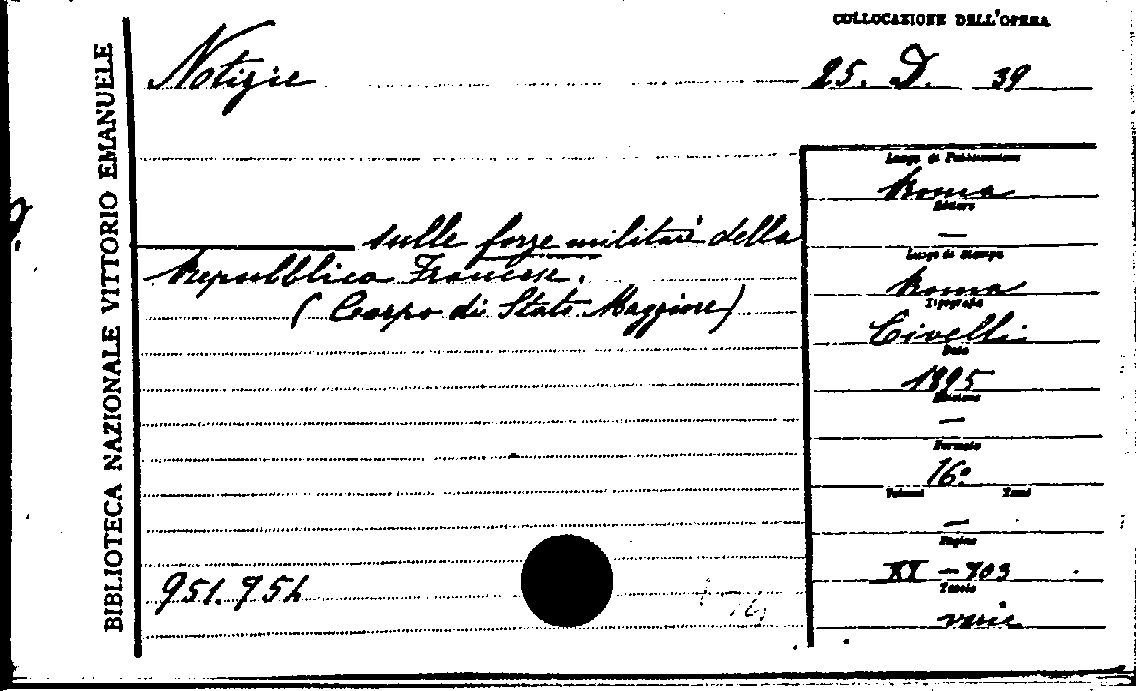 BIBLIOTECA NAZIONALE VITTORIO EMANUELE
COLLOCAZIONE DELL'OPERA
25. D. 39
Notizie
sulle forze militari della
Repubblica Francese.
(Corpo di Stato Maggiore)
951.954
Luogo di Pubblicazione
Roma
Editore
—
Luogo di Stampa
Roma
Tipografia
Civelli
Data
1895
Edizione
—
Formato
16°
Volumi Tomi
—
Pagine
XI - 703
Tavole
varie